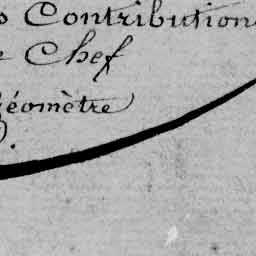 s Contributions
e Chef
Géomètre